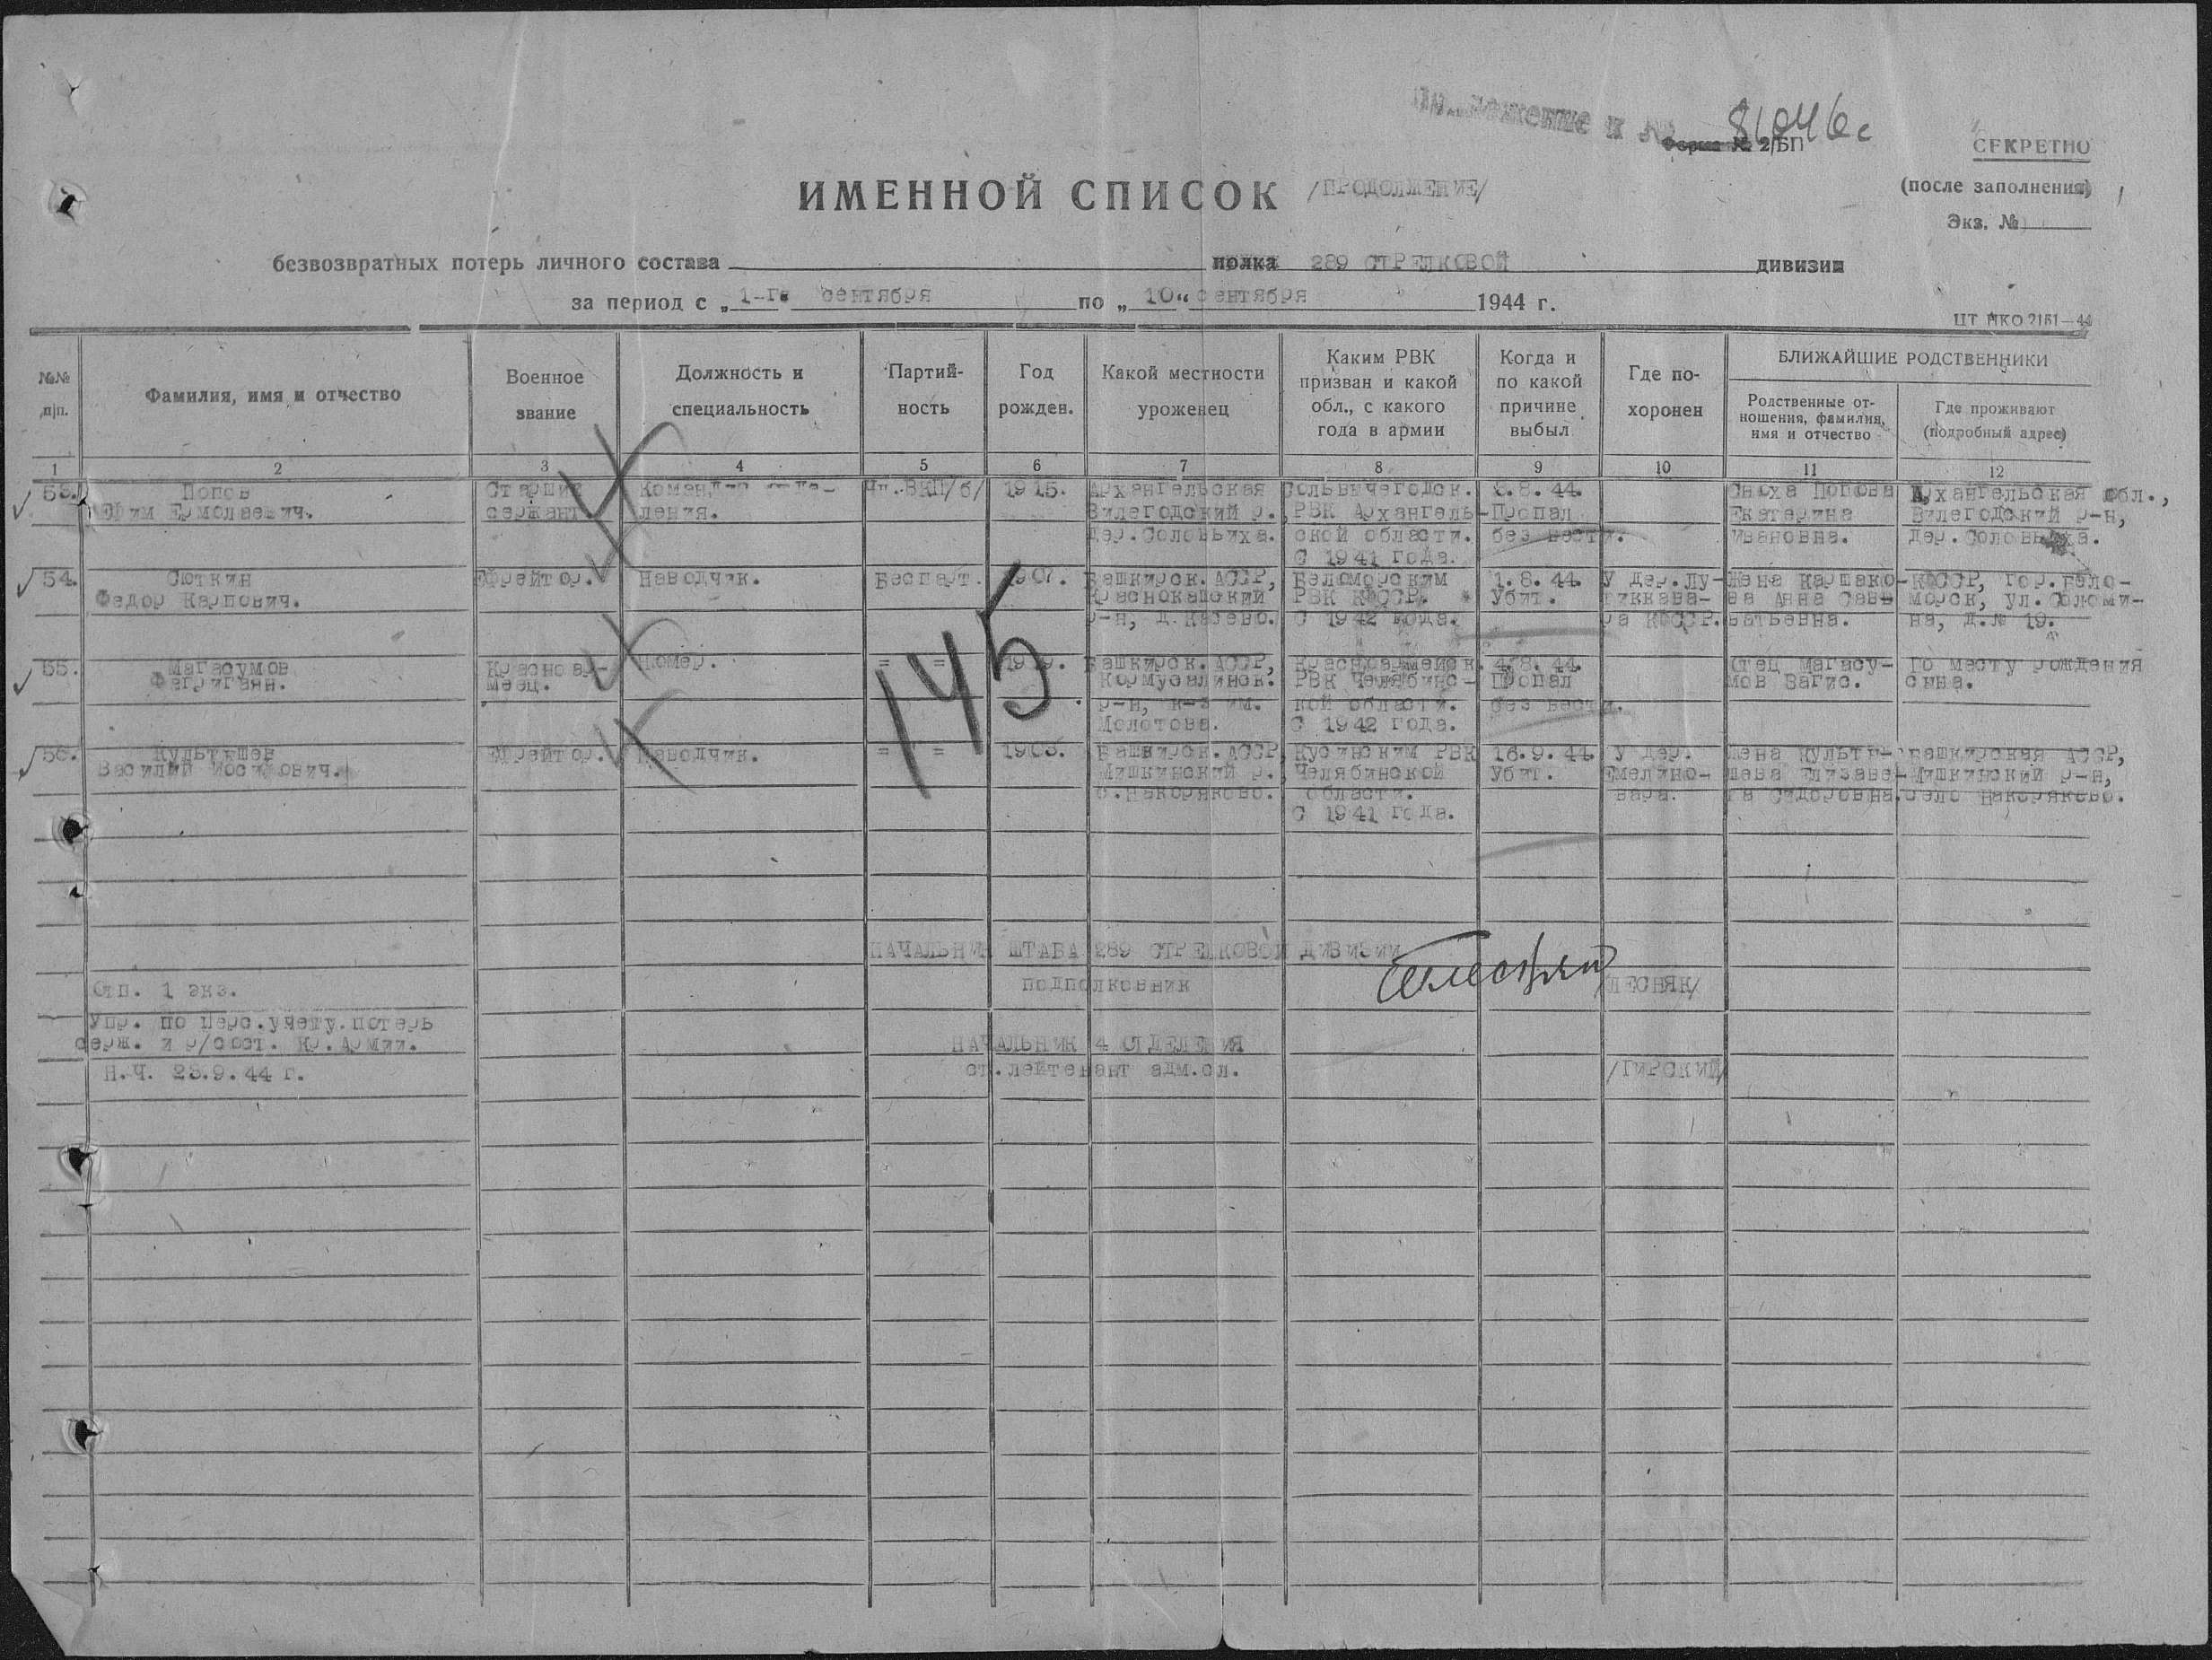 к № 81046с
Форма № 2/БП
СЕКРЕТНО
(после заполнения)
Экз. №
ИМЕННОЙ СПИСОК /ПРОДОЛЖЕНИЕ/
безвозвратных потерь личного состава полка 289 СТРЕЛКОВОЙ дивизии
за период с „1-го сентября по „10“ сентября 1944 г.
ЦТ НКО 2161—44
№№ п|п.
Фамилия, имя и отчество
Военное звание
Должность и специальность
Партий-
ность
Год рожден.
Какой местности уроженец
Каким РВК
призван и какой
обл., с какого
года в армии
Когда и
по какой
причине
выбыл
Где по-
хоронен
БЛИЖАЙШИЕ РОДСТВЕННИКИ
Родственные от-
ношения, фамилия,
имя и отчество
Где проживают
(подробный адрес)
1 2 3 4 5 6 7 8 9 10 11 12
53.
Попов
Ефим Ермолаевич.
Старший
сержант
Командир отде-
ления.
Чл. ВКП/б/
1915.
Архангельская
Вилегодский р.
дер. Соловьиха.
Сольвычегодск.
РВК Архангель-
ской области.
С 1941 года.
8. 44.
Пропал
без вести.
Сноха Попова
Екатерина
Ивановна.
Архангельская обл.,
Вилегодский р-н,
дер. Соловьиха.
54.
Сюткин
Федор Карпович.
Ефрейтор.
Наводчик.
Беспарт.
1907.
Башкирск. АССР,
Краснокамский
р-н, д. Касево.
Беломорским
РВК КФССР.
С 1942 года.
1.8. 44.
Убит.
У дер. Лу-
тиккава-
ра КФССР.
Жена Каршако-
ва Анна Сав-
ватьевна.
КФССР, гор. Бело-
морск, ул. Соломи-
на, д.№ 19.
55.
Магасумов
Фагригаян.
Красноар-
меец.
Номер.
= =
1919.
Башкирск. АССР,
Кормусалинск.
р-н, к-з им.
Молотова.
Красноармейск.
РВК Челябинс-
кой области.
С 1942 года.
4.8. 44.
Пропал
без вести.
Отец Магасу-
мов Вагис.
По месту рождения
сына.
56.
Культышев
Василий Иосифович.
Ефрейтор.
Наводчик.
= =
1903.
Башкирск. АССР
Мишкинский р.
с. Накоряково.
Кусинским РВК
Челябинской
области.
С 1941 года.
16.9. 44.
Убит.
У дер.
Емелино-
вара.
Жена Культы-
шева Елизаве-
та Сидоровна.
Башкирская АССР,
Мишкинский р-н,
село Накоряково.
145
НАЧАЛЬНИК ШТАБА 289 СТРЕЛКОВОЙ ДИВИЗИИ
подполковник /ЛЕСНЯК/
Отп. 1 экз.
Упр. по перс.учету.потерь
серж. и р/сост. Кр.Армии.
Н.Ч. 23.9.44 г.
НАЧАЛЬНИК 4 ОТДЕЛЕНИЯ
ст.лейтенант адм.сл. /ПИРСКИЙ/